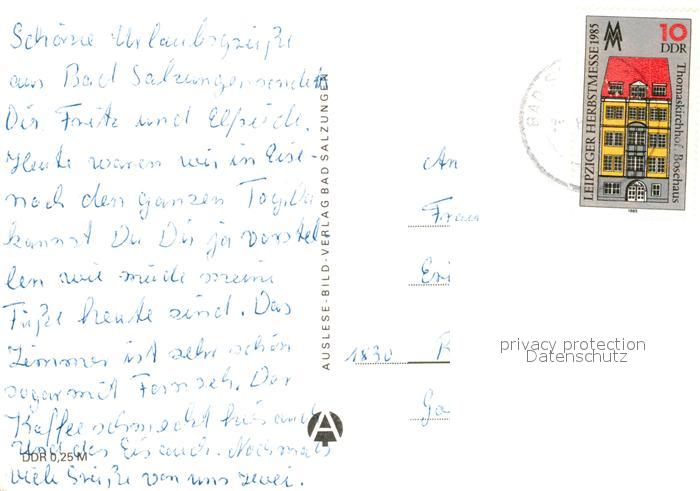 Schöne Urlaubsgrüße
aus Bad Salzungen sendet
Dir Fritz und Elfride.
Heute waren wir in Eise-
nach den ganzen Tag. Da
kannst Du Dir ja vorstel-
len wie müde meine
Füße heute sind. Das
Zimmer ist sehr schön
sogar mit Fernseh. Der
Kaffee schmeckt hier auch
Und das Eis auch. Nochmals
viele Grüße von uns zwei.
DDR 0,25 M
AUSLESE-BILD-VERLAG BAD SALZUNGEN
An
Frau
Eri
1830 R
Ga
privacy protection
Datenschutz
BAD S
LEIPZIGER HERBSTMESSE 1985
10
DDR
Thomaskirchhof, Boschaus
1985